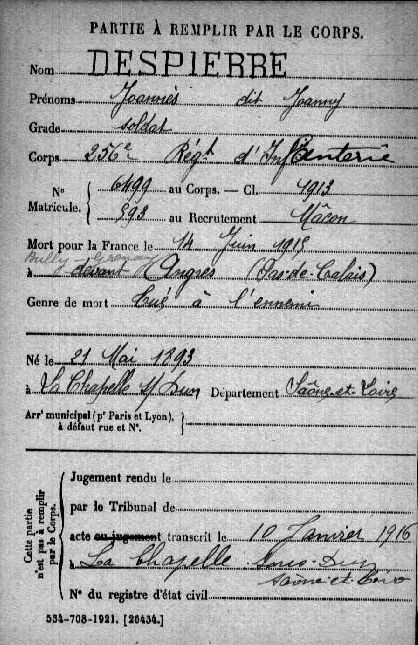 PARTIE À REMPLIR PAR LE CORPS.
Nom DESPIERRE
Prénoms Joannès dit Joanny
Grade soldat
Corps 256e Régt d'Infanterie
N° Matricule. { 6499 au Corps. — Cl. 1913
893 au Recrutement Mâcon
Mort pour la France le 14 Juin 1915
Bully Grenay
à devant Angres (Pas-de-Calais)
Genre de mort Tué à l'ennemi
Né le 21 Mai 1893
à La Chapelle s/ Dun Département Saône-et-Loire
Arrt municipal (pr Paris et Lyon), à défaut rue et N°. }
Cette partie n'est pas à remplir par le Corps.
Jugement rendu le
par le Tribunal de
acte ou jugement transcrit le 10 Janvier 1916
à La Chapelle sous-Dun
Saône-et-Loire
N° du registre d'état civil
534-708-1921. [26434.]